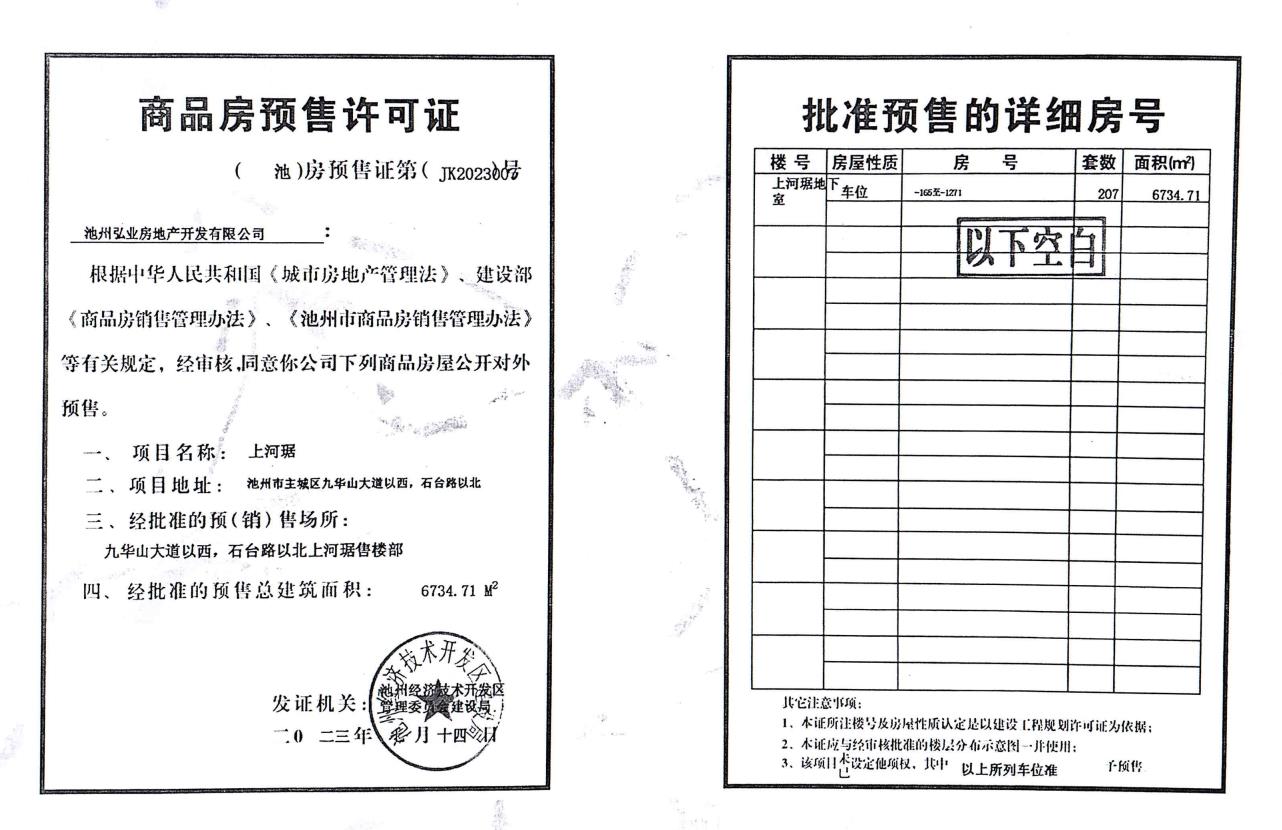 商品房预售许可证
（ 池）房预售证第（ JK2023007）号
池州弘业房地产开发有限公司 ：
根据中华人民共和国《城市房地产管理法》、建设部
《商品房销售管理办法》、《池州市商品房销售管理办法》
等有关规定，经审核，同意你公司下列商品房屋公开对外
预售。
一、项目名称： 上河琚
二、项目地址： 池州市主城区九华山大道以西，石台路以北
三、经批准的预（销）售场所：
九华山大道以西，石台路以北上河琚售楼部
四、经批准的预售总建筑面积： 6734.71 M²
发证机关： 池州经济技术开发区
管理委员会建设局
二0 二三年 月十四日
批准预售的详细房号
楼号 房屋性质 房号 套数 面积(m²)
上河琚地下室 车位 -165至-1271 207 6734.71
以下空白
其它注意事项：
1、本证所注楼号及房屋性质认定是以建设工程规划许可证为依据；
2、本证应与经审核批准的楼层分布示意图一并使用；
3、该项目未已设定他项权，其中 以上所列车位准 予预售